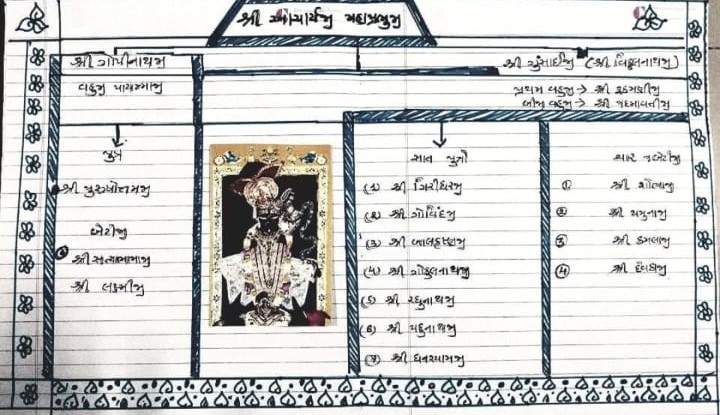 શ્રી આચાર્યજી મહાપ્રભુજી
શ્રી ગોપીનાથજી
વહુજી પાયમ્માજી
પુત્ર
શ્રી પુરુષોત્તમજી
બેટીજી
શ્રી સત્યભામાજી
શ્રી લક્ષ્મીજી
શ્રી ગુંસાઈજી (શ્રી વિઠ્ઠલનાથજી)
પ્રથમ વહુજી → શ્રી રુકમણીજી
બીજા વહુજી → શ્રી પદમાવતીજી
સાત પુત્રો
(૧) શ્રી ગિરીધરજી
(૨) શ્રી ગોવિંદજી
(૩) શ્રી બાલકૃષ્ણજી
(૪) શ્રી ગોકુલનાથજી
(૫) શ્રી રઘુનાથજી
(૬) શ્રી યદુનાથજી
(૭) શ્રી ઘનશ્યામજી
ચાર બેટીજી
૧ શ્રી શોભાજી
૨ શ્રી યમુનાજી
૩ શ્રી કમલાજી
૪ શ્રી દેવકાજી